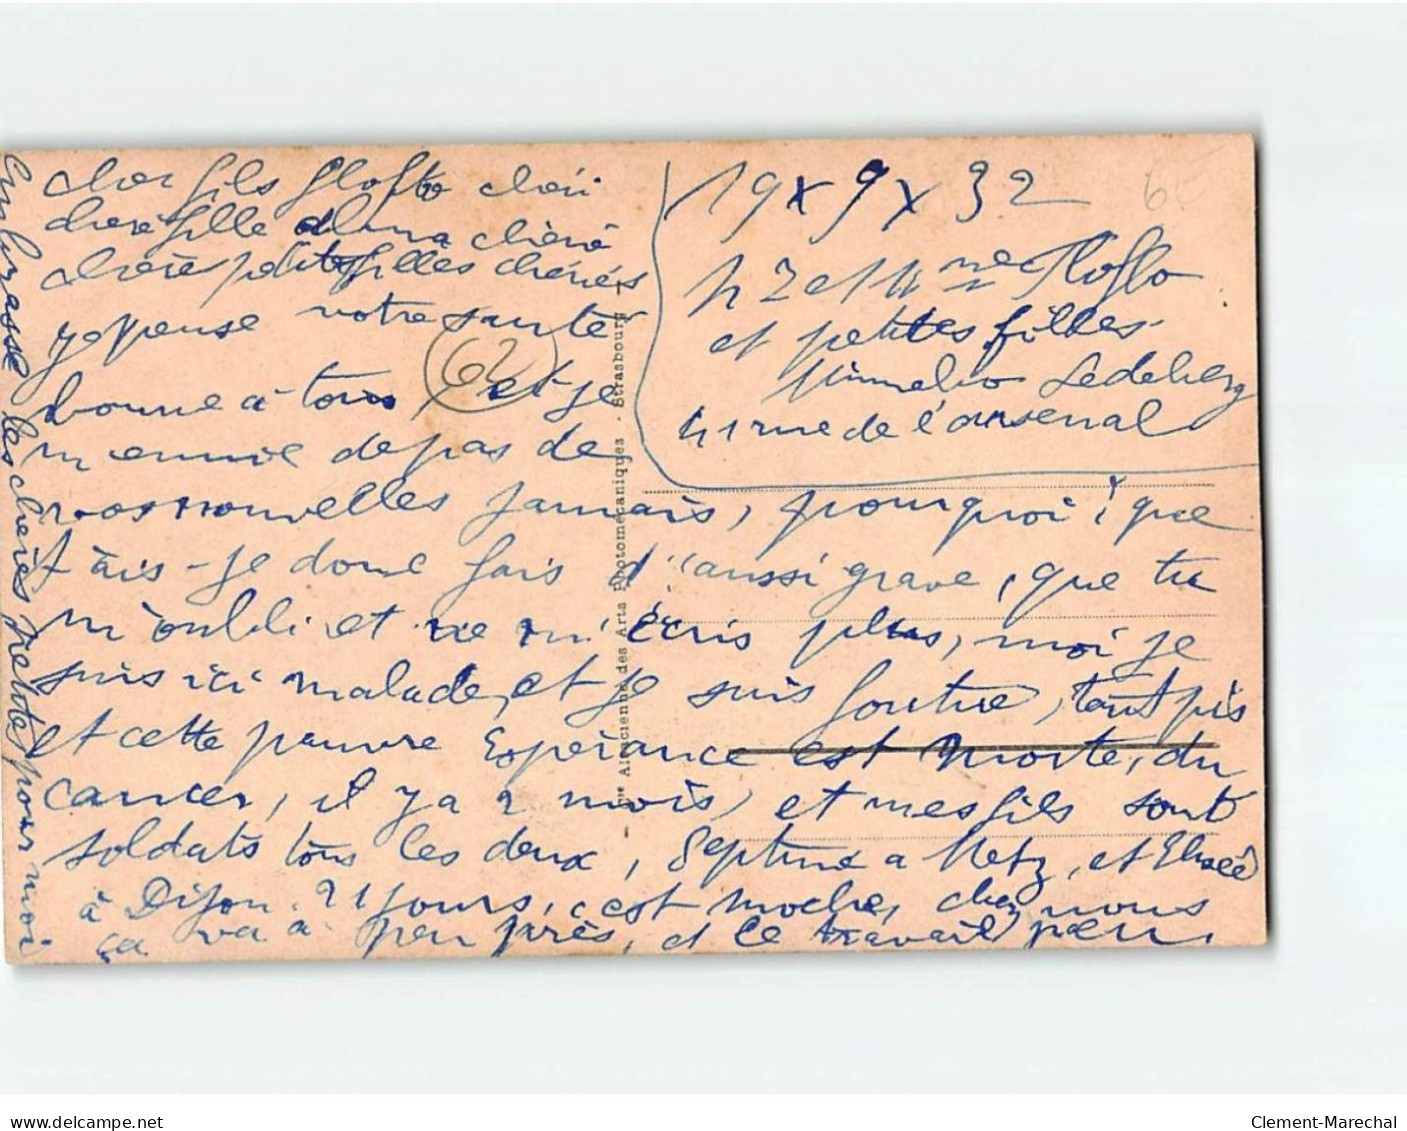 19 x 9 x 32
et petites filles
Ledeberg
41 rue de l'arsenal
cher fils chéri
chère fille chérie
chères petites filles chéries
je pense votre santé
bonne à tous, et je
m'ennuie de pas de
vos nouvelles jamais, pourquoi, que
t'ais-je donc fais d'aussi grave, que tu
m'oubli et ne m'écris plus, moi je
suis ici malade, et je suis foutue, tant pis
et cette pauvre Espérance est morte, du
cancer, il y a 2 mois, et mes fils sont
soldats tous les deux, a Metz, et Elisée
à Dijon. 21 jours, c'est moche, chez nous
ça va à peu près, et le travail peu.
Embrasse les chères petites pour moi
62
6€
Cie Alsacienne des Arts Photomécaniques - Strasbourg
delcampe.net
Clement-Marechal